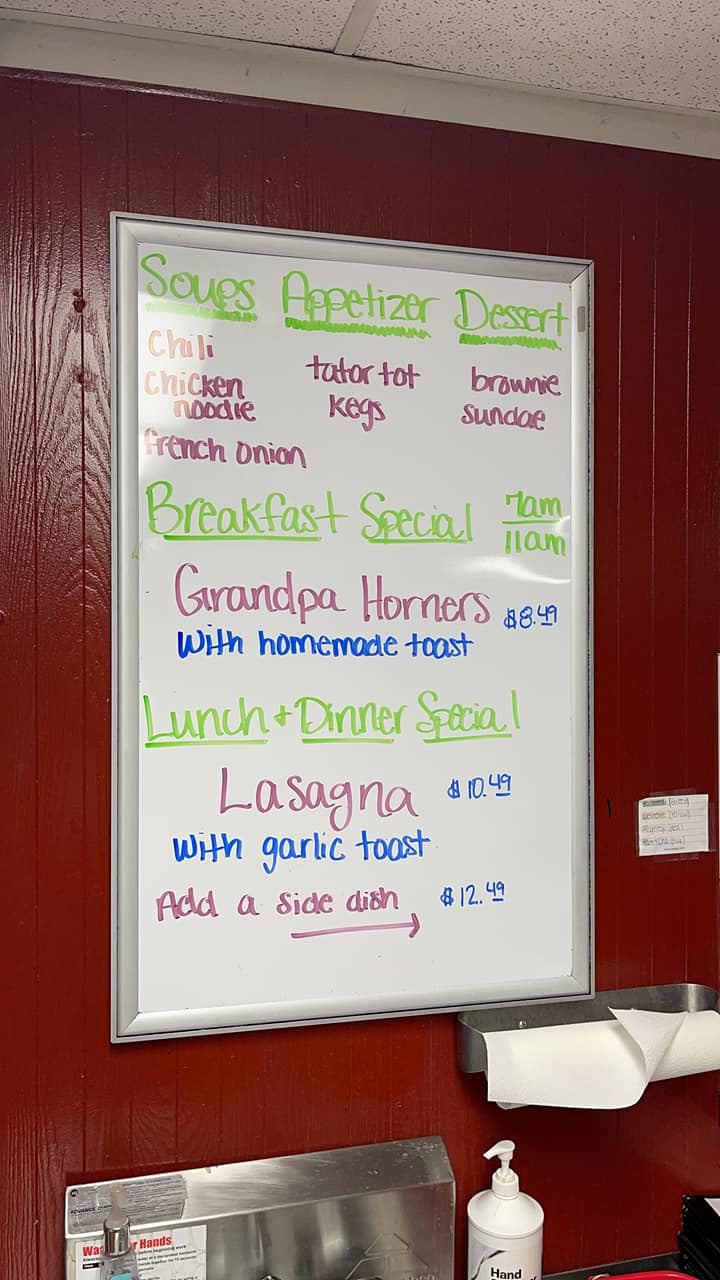 Soups Appetizer Dessert
Chili
Chicken noodle
french onion
tator tot
kegs
brownie
sundae
Breakfast Special 7am
11am
Grandpa Horners $8.49
with homemade toast
Lunch + Dinner Special
Lasagna $10.49
with garlic toast
Add a side dish $12.49
ADVANCE
Hands
before beginning work
Hand